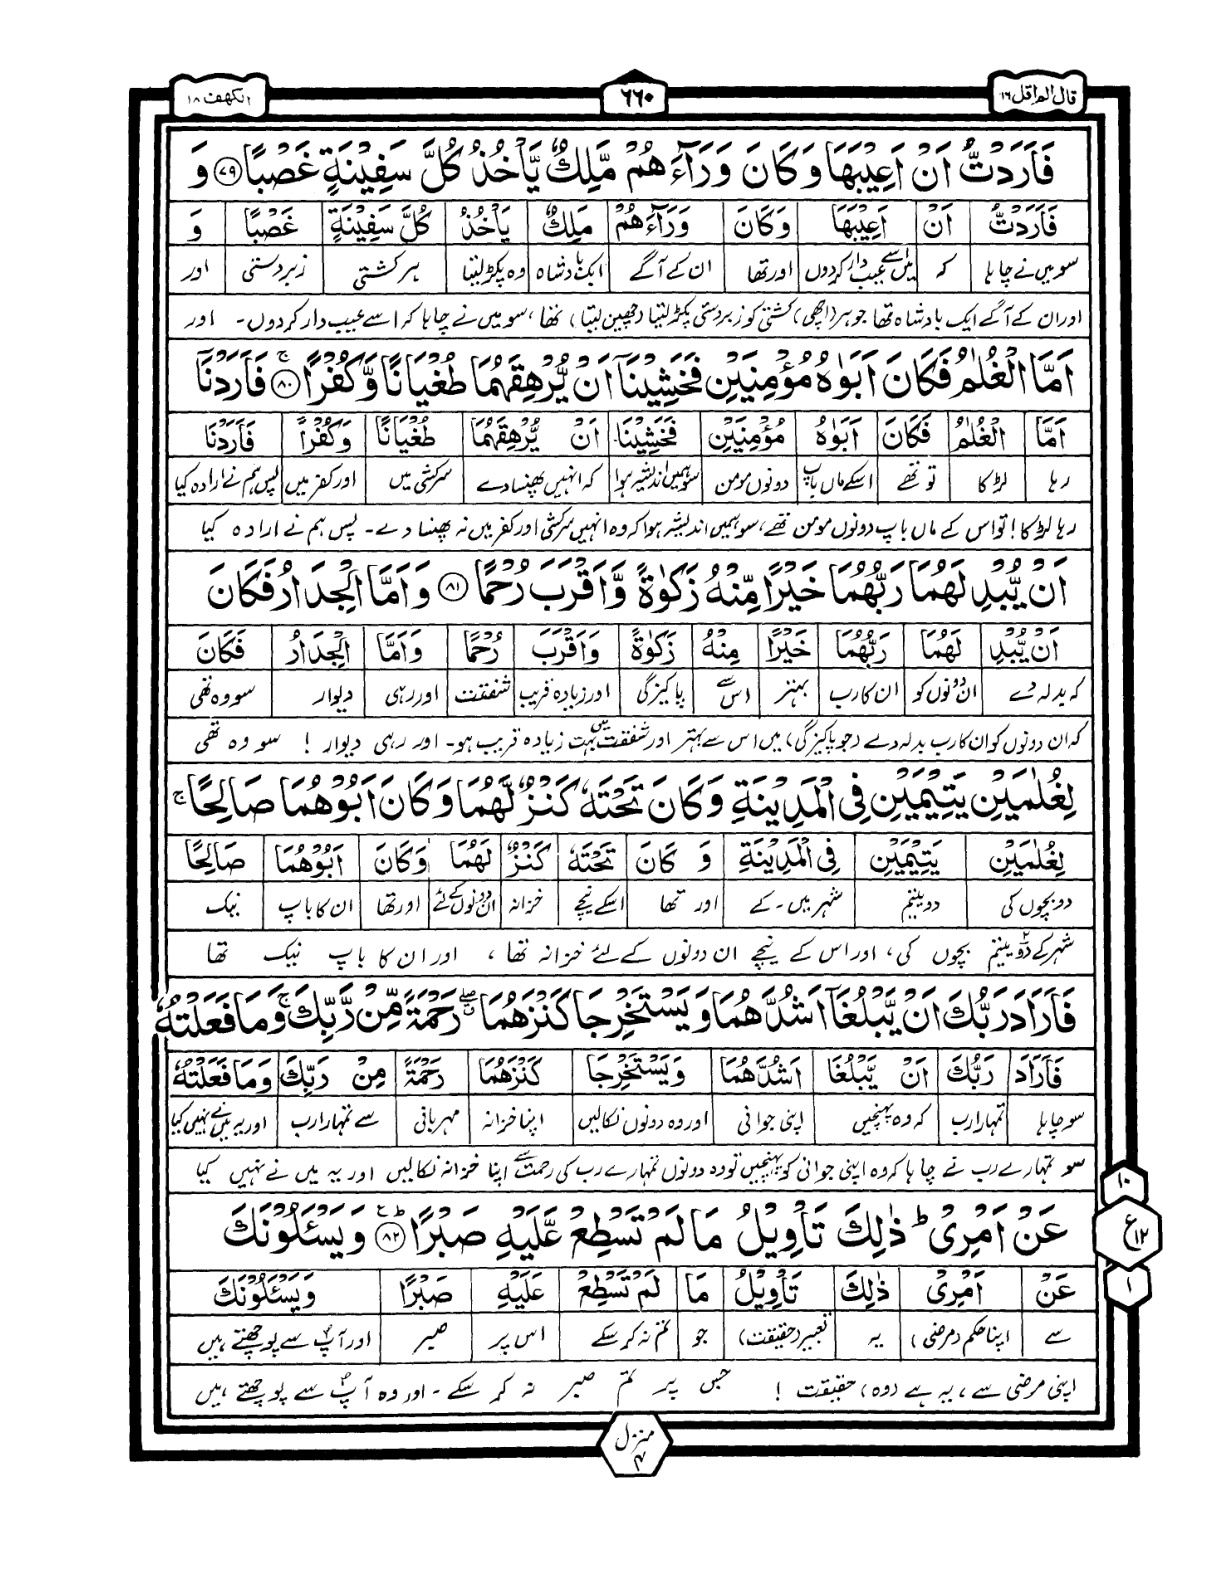 قال الم اقل ١٦
٦٦٠
الکهف ١٨
فَاَرَدْتُّ اَنْ اَعِیْبَهَا وَ كَانَ وَرَآءَهُمْ مَّلِكٌ یَّاْخُذُ كُلَّ سَفِیْنَةٍ غَصْبًا ﴿٧٩﴾ وَ
فَاَرَدْتُّ اَنْ اَعِیْبَهَا وَكَانَ وَرَآءَهُمْ مَلِكٌ یَاْخُذُ كُلَّ سَفِیْنَةٍ غَصْبًا وَ
سو میں نے چاہا کہ میں اسے عیب دار کردوں اور تھا ان کے آگے ایک بادشاہ وہ پکڑ لیتا ہر کشتی زبردستی اور
اور ان کے آگے ایک بادشاہ تھا جو ہر (اچھی) کشتی کو زبردستی پکڑ لیتا (چھین لیتا) تھا، سو میں نے چاہا کہ اسے عیب دار کردوں۔ اور
اَمَّا الْغُلٰمُ فَكَانَ اَبَوٰهُ مُؤْمِنَیْنِ فَخَشِیْنَاۤ اَنْ یُّرْهِقَهُمَا طُغْیَانًا وَّ كُفْرًا ﴿٨٠﴾ۚ فَاَرَدْنَاۤ
اَمَّا الْغُلٰمُ فَكَانَ اَبَوٰهُ مُؤْمِنَیْنِ فَخَشِیْنَا اَنْ یُّرْهِقَهُمَا طُغْیَانًا وَكُفْرًا فَاَرَدْنَا
رہا لڑکا تو تھے اسکے ماں باپ دونوں مومن سو ہمیں اندیشہ ہوا کہ انہیں پھنسا دے سرکشی میں اور کفر میں پس ہم نے ارادہ کیا
رہا لڑکا! تو اس کے ماں باپ دونوں مومن تھے، سو ہمیں اندیشہ ہوا کہ وہ انہیں سرکشی اور کفر میں نہ پھنسا دے۔ پس ہم نے ارادہ کیا
اَنْ یُّبْدِلَهُمَا رَبُّهُمَا خَیْرًا مِّنْهُ زَكٰوةً وَّ اَقْرَبَ رُحْمًا ﴿٨١﴾ وَ اَمَّا الْجِدَارُ فَكَانَ
اَنْ یُّبْدِ لَهُمَا رَبُّهُمَا خَیْرًا مِنْهُ زَكٰوةً وَاَقْرَبَ رُحْمًا وَاَمَّا الْجِدَارُ فَكَانَ
کہ بدلہ دے ان دونوں کو ان کا رب بہتر اس سے پاکیزگی اور زیادہ قریب شفقت اور رہی دیوار سو وہ تھی
کہ ان دونوں کو ان کا رب بدلہ دے (جو پاکیزگی) میں اس سے بہتر اور شفقت میں بہت زیادہ قریب ہو۔ اور رہی دیوار! سو وہ تھی
لِغُلٰمَیْنِ یَتِیْمَیْنِ فِی الْمَدِیْنَةِ وَ كَانَ تَحْتَهٗ كَنْزٌ لَّهُمَا وَ كَانَ اَبُوْهُمَا صَالِحًا ۚ
لِغُلٰمَیْنِ یَتِیْمَیْنِ فِی الْمَدِیْنَةِ وَ كَانَ تَحْتَهٗ كَنْزٌ لَهُمَا وَكَانَ اَبُوْهُمَا صَالِحًا
دو بچوں کی دو یتیم شہر میں۔ کے اور تھا اسکے نیچے خزانہ ان دونوں کے لئے اور تھا ان کا باپ نیک
شہر کے دو یتیم بچوں کی، اور اس کے نیچے ان دونوں کے لئے خزانہ تھا، اور ان کا باپ نیک تھا
فَاَرَادَ رَبُّكَ اَنْ یَّبْلُغَاۤ اَشُدَّهُمَا وَ یَسْتَخْرِجَا كَنْزَهُمَا ۖ رَحْمَةً مِّنْ رَّبِّكَ ۚ وَ مَا فَعَلْتُهٗ
فَاَرَادَ رَبُّكَ اَنْ یَّبْلُغَا اَشُدَّهُمَا وَیَسْتَخْرِجَا كَنْزَهُمَا رَحْمَةً مِنْ رَبِّكَ وَمَا فَعَلْتُهٗ
سو چاہا تمہارا رب کہ وہ پہنچیں اپنی جوانی اور وہ دونوں نکالیں اپنا خزانہ مہربانی سے تمہارا رب اور یہ میں نے نہیں کیا
سو تمہارے رب نے چاہا کہ وہ اپنی جوانی کو پہنچیں تو وہ دونوں تمہارے رب کی رحمت سے اپنا خزانہ نکالیں اور یہ میں نے نہیں کیا
١٠
عَنْ اَمْرِیْ ؕ ذٰلِكَ تَاْوِیْلُ مَا لَمْ تَسْطِعْ عَّلَیْهِ صَبْرًا ﴿٨٢﴾ؕ وَ یَسْـَٔلُوْنَكَ
ع ١٢
عَنْ اَمْرِیْ ذٰلِكَ تَاْوِیْلُ مَا لَمْ تَسْطِعْ عَلَیْهِ صَبْرًا وَیَسْـَٔلُوْنَكَ
١
سے اپنا حکم (مرضی) یہ تعبیر (حقیقت) جو تم نہ کر سکے اس پر صبر اور آپؐ سے پوچھتے ہیں
اپنی مرضی سے، یہ ہے (وہ) حقیقت! جس پر تم صبر نہ کر سکے۔ اور وہ آپؐ سے پوچھتے ہیں
منزل ۴